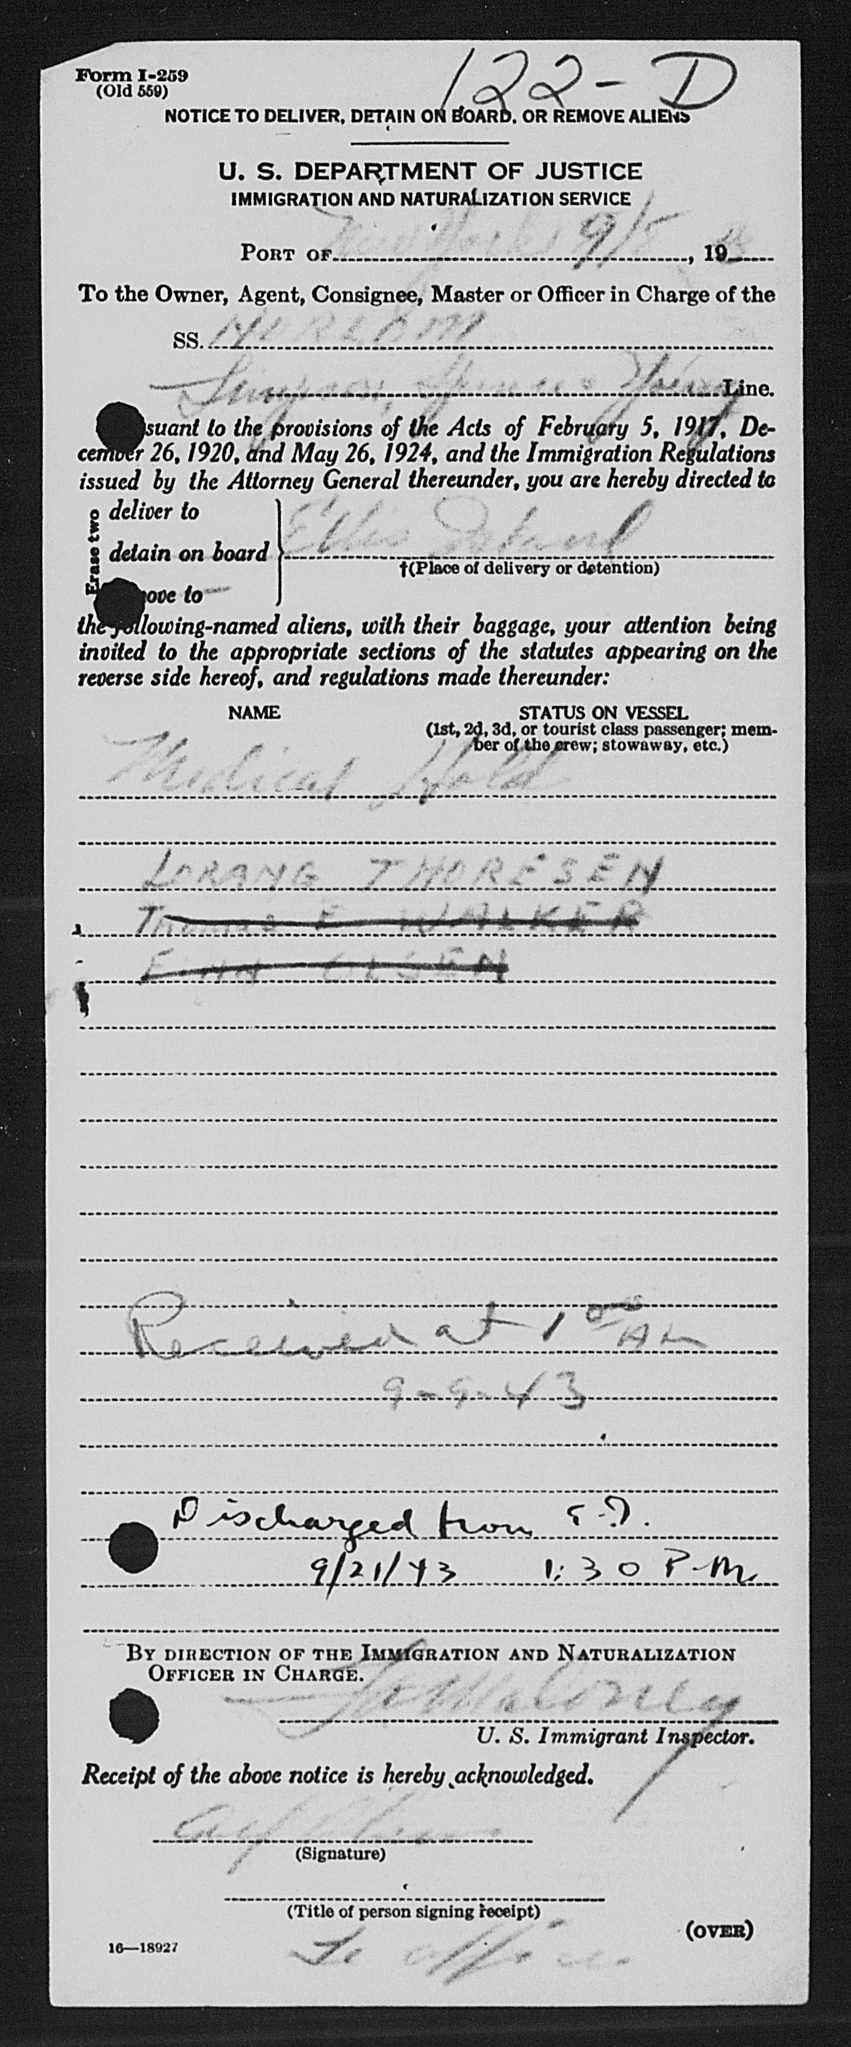 Form I-259
(Old 559)
122-D
NOTICE TO DELIVER, DETAIN ON BOARD, OR REMOVE ALIENS
U. S. DEPARTMENT OF JUSTICE
IMMIGRATION AND NATURALIZATION SERVICE
PORT OF New York 9/8, 19
To the Owner, Agent, Consignee, Master or Officer in Charge of the
SS. NORLOM
Simpson, Spence & Young Line.
suant to the provisions of the Acts of February 5, 1917, De-
cember 26, 1920, and May 26, 1924, and the Immigration Regulations
issued by the Attorney General thereunder, you are hereby directed to
Erase two
deliver to
detain on board Ellis Island
†(Place of delivery or detention)
ove to
the following-named aliens, with their baggage, your attention being
invited to the appropriate sections of the statutes appearing on the
reverse side hereof, and regulations made thereunder:
NAME STATUS ON VESSEL
(1st, 2d, 3d, or tourist class passenger; mem-
ber of the crew; stowaway, etc.)
Medical Hold
LORANG THORESEN
Thomas E WALKER
FINN OLSEN
Received at 1 00 AM
9-9-43
Discharged from E.I.
9/21/43 1:30 P.M.
BY DIRECTION OF THE IMMIGRATION AND NATURALIZATION
OFFICER IN CHARGE.
Maloney
U. S. Immigrant Inspector.
Receipt of the above notice is hereby acknowledged.
(Signature)
(Title of person signing receipt)
(OVER)
16—18927
office